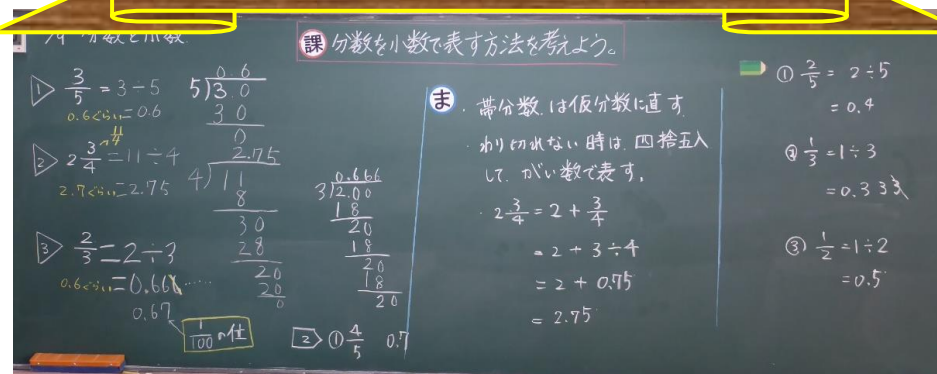 分数と小数
課 分数を小数で表す方法を考えよう。
1 3/5 = 3÷5
0.6ぐらい = 0.6
0 6
5)3.0
3 0
0
11/4
2 2 3/4 = 11÷4
2.7ぐらい = 2.75
2.75
4)11
8
30
28
20
20
0
3 2/3 = 2÷3
0.6ぐらい = 0.666……
0.67
1/100の位
0.666
3)2.00
18
20
18
20
18
20
2 ① 4/5 0.7
ま
・帯分数は仮分数に直す
・わり切れない時は、四捨五入
して、がい数で表す。
・2 3/4 = 2 + 3/4
= 2 + 3÷4
= 2 + 0.75
= 2.75
① 2/5 = 2÷5
= 0.4
② 1/3 = 1÷3
= 0.333
③ 1/2 = 1÷2
= 0.5